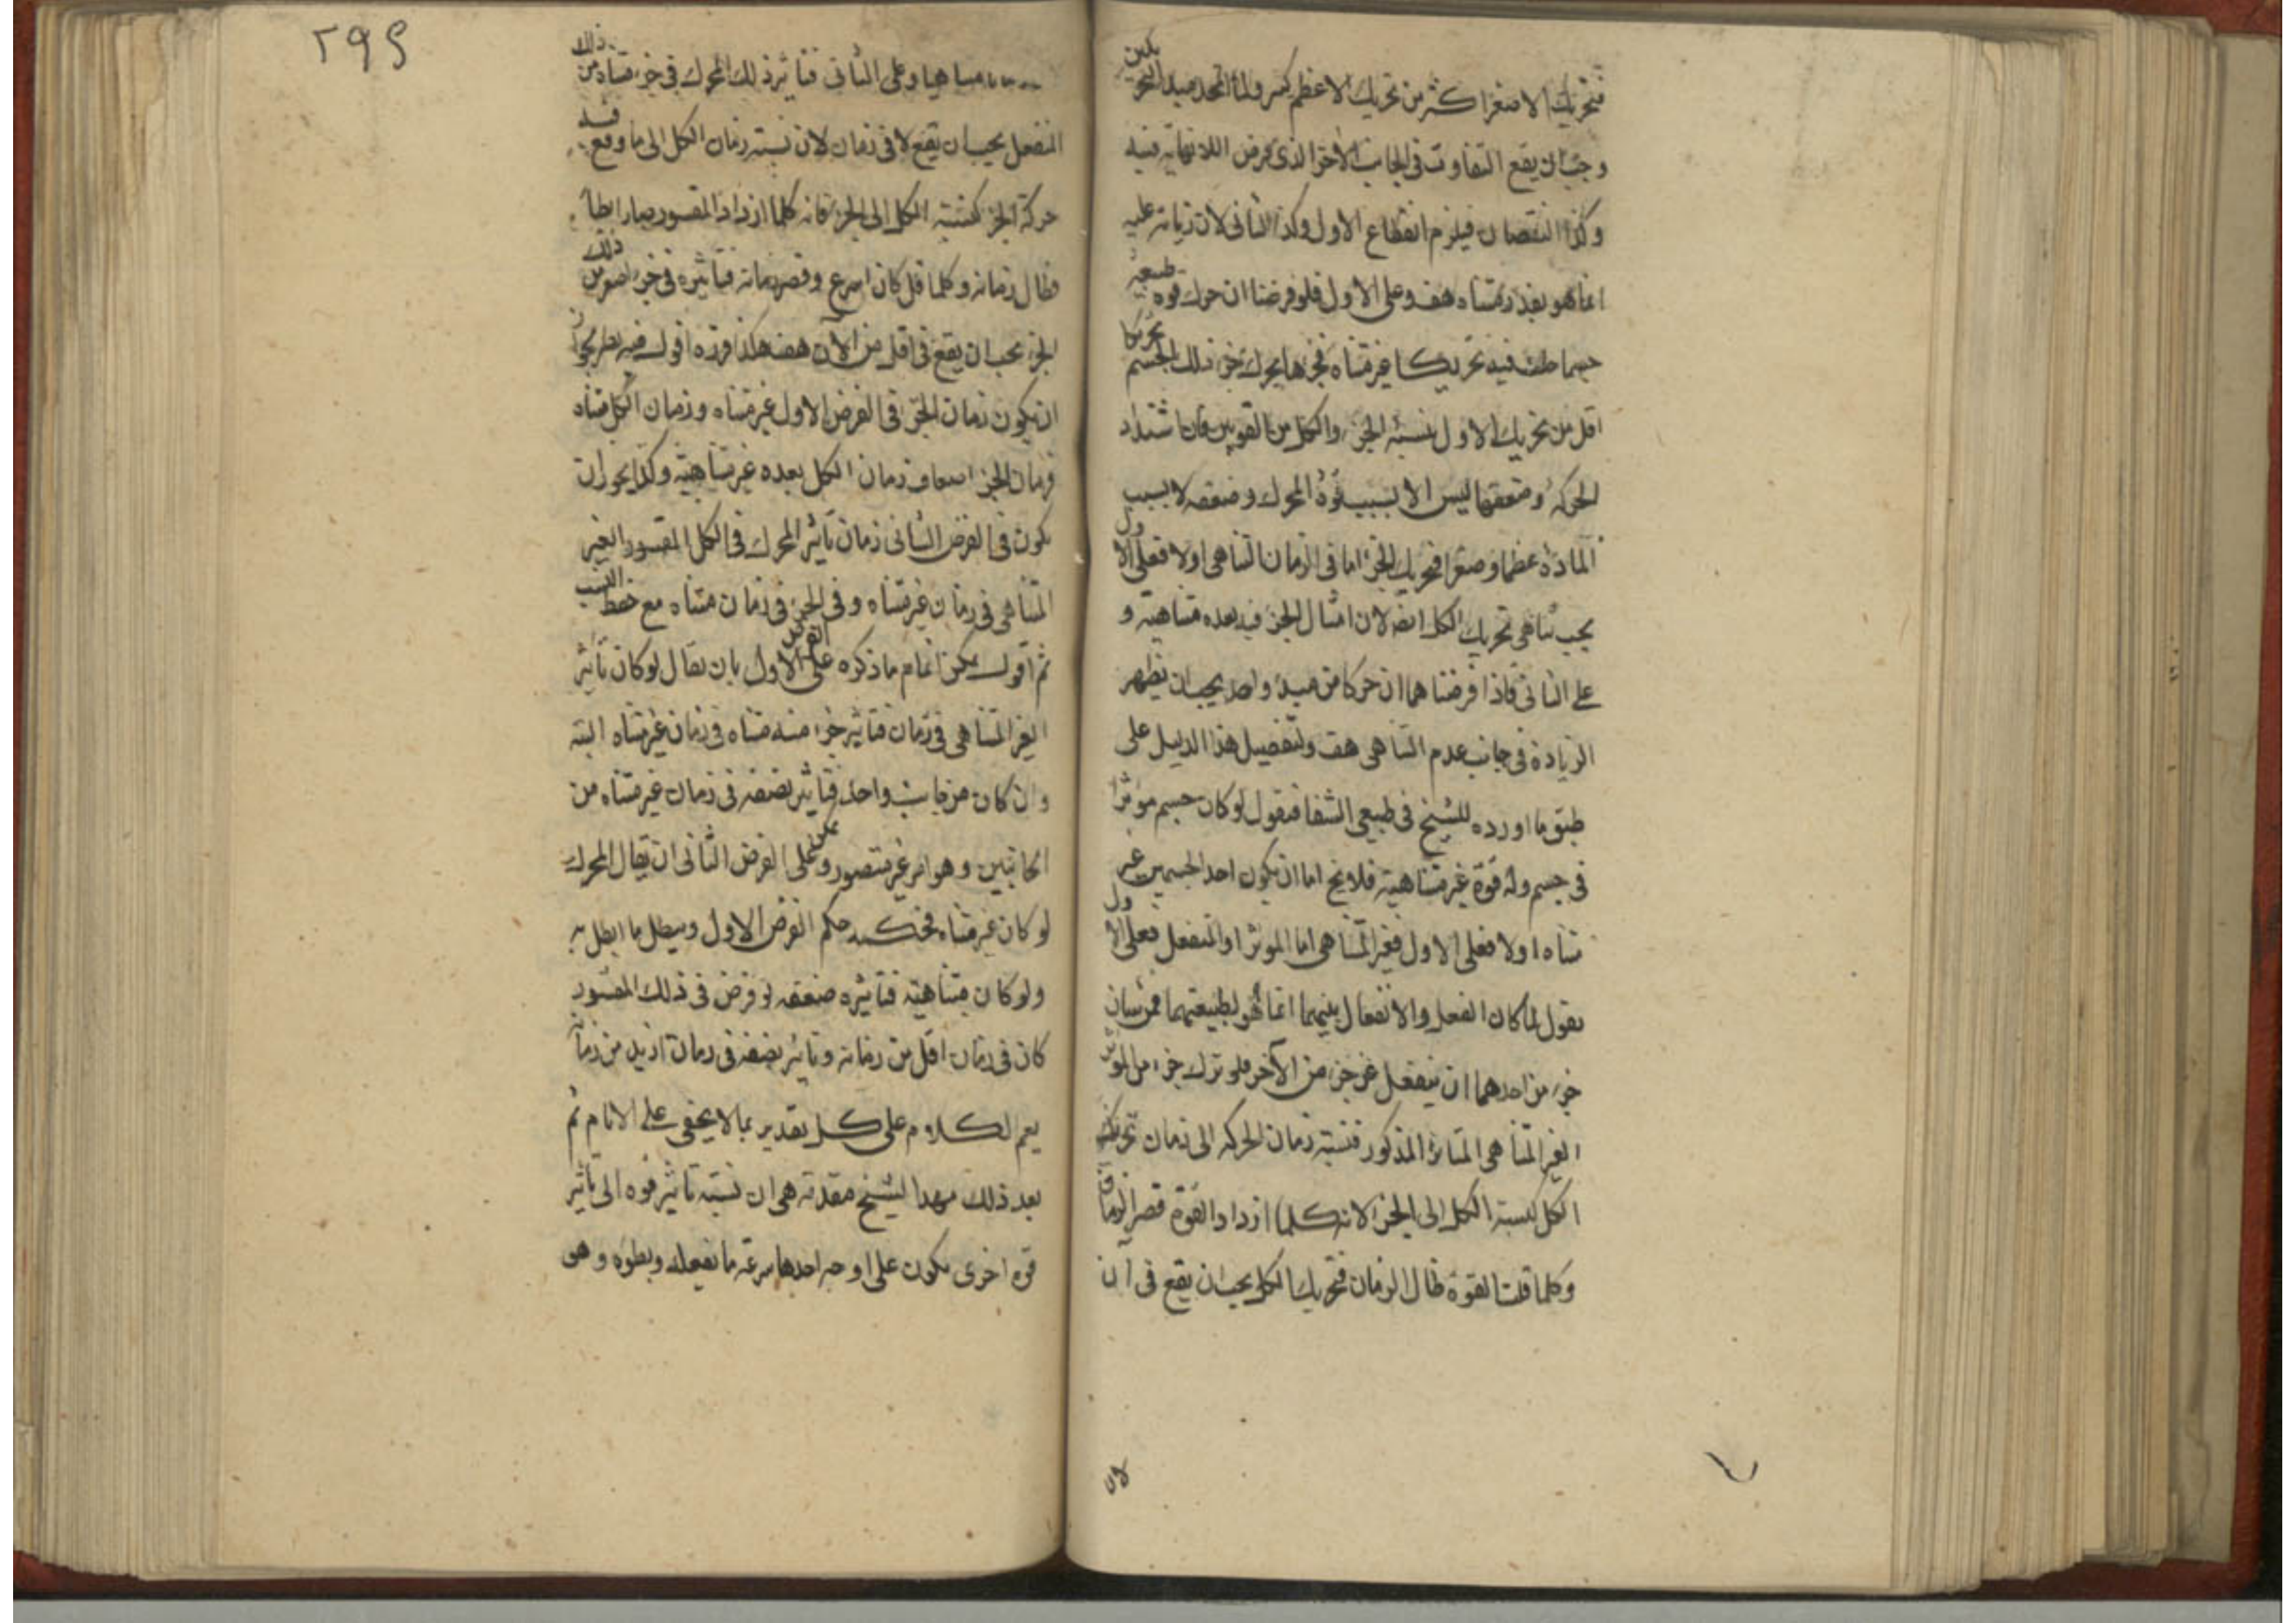 فتحريك الاصغر اكثر من تحريك الاعظم كسر ولما اتحد مبدأ التحريكين
وجب ان يقع التفاوت فى الجانب الاخر الذى فرض اللانهاية فيه
وكذا النقصان فيلزم انقطاع الاول وكذا الثانى لان زيادته عليه
انما هو بقدر متناه هف وعلى الاول فلو فرضنا ان حرك قوه طبيعية
جسما حلت فيه تحريكا غير متناه فجزءها يحرك جزء ذلك الجسم تحريكا
اقل من تحريك الاول بنسبة الجزء والكل من القوتين فان اشتداد
الحركة وضعفها ليس الا بسبب قوة المحرك وضعفه لا بسبب
المادة عظما وصغرا فتحريك الجزء اما فى الزمان المتناهى اولا فعلى الاول
يجب تناهى تحريك الكل ايضا لان امثال الجزء فيه بعده متناهية و
على الثانى فاذا فرضنا هما ان حركا من مبدء واحد يجب ان يظهر
الزيادة فى جانب عدم التناهى هف ولتفصيل هذا الدليل على
طبق ما اورده الشيخ فى طبيعى الشفا فنقول لو كان جسم موثرا
فى جسم وله قوة غير متناهية فلا يخ اما ان يكون احد الجسمين غير
متناه اولا فعلى الاول فغير المتناهى اما الموثر او المنفعل فعلى الاول
نقول لما كان الفعل والانفعال بينهما انما هو لطبيعتهما فمن شان
جزء من احدهما ان ينفعل عن جزء من الآخر فلو ترك جزء من الموثر
الغير المتناهى المتاثر المذكور فنسبة زمان الحركة الى زمان تحريك
الكل كنسبة الكل الى الجزء لانه كلما ازداد القوة قصر الزمان
وكلما قلت القوة طال الزمان فتحريك الكل يجب ان يقع فى آن
لان
٢٩٩
وعلى الثانى فتاثير ذلك المحرك فى جزء متناه من ذلك
المنفعل يجب ان يقع لا فى زمان لان نسبة زمان الكل الى ما وقع فيه
حركة الجزء كنسبة الكل الى الجزء فانه كلما ازداد المقسور صار ابطأ
فطال زمانه وكلما قل كان اسرع وقصر زمانه فتاثيره فى جزء اصغر من ذلك
الجزء يجب ان يقع فى اقل من الآن هف هكذا قرره اقول فيه نظر يجوز
ان يكون زمان الجزء فى الفرض الاول غير متناه وزمان الكل متناه
فزمان الجزء اضعاف زمان الكل بعده غير متناهية وكذا يجوز ان
يكون فى الفرض الثانى زمان تاثير المحرك فى الكل المقسور الغير
المتناهى فى زمان غير متناه وفى الجزء فى زمان متناه مع حفظ النسب
ثم اقول يمكن اتمام ما ذكره على الفرض الاول بان يقال لو كان تاثير
الغير المتناهى فى زمان فتاثير جزء منه متناه فى زمان غير متناه البتة
وان كان من جانب واحد فتاثير نصفه فى زمان غير متناه من
الجانبين وهو امر غير متصور ويمكن على الفرض الثانى ان يقال المحرك
لو كان غير متناه فحكمه حكم الفرض الاول ويبطل بما ابطل به
ولو كان متناهية فتاثيره ضعفه لو فرض فى ذلك المقسور
كان فى زمان اقل من زمانه وتاثير نصفه فى زمان ازيد من زمانه
يعم الكلام على كل تقدير بما لا يخفى على الانام ثم
بعد ذلك مهد الشيخ مقدمة هى ان نسبة تاثير قوه الى تاثير
قوة اخرى يكون على اوجه احدها سرعة ما تفعله وبطوه وهو